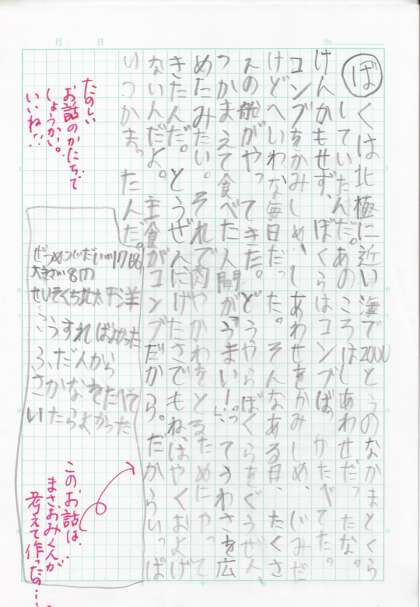 ぼくは北極に近い海で2000とうのなかまとくら
していたんだ。あのころはしあわせだったな。
けんかもせず、ぼくらはコンブばっかたべてた。
コンブをかみしめ、しあわせをかみしめ、じみだ
けどへいわな毎日だった。そんなある日、たくさ
んの船がやってきた。どうやらぼくらをぐうぜん、
つかまえて食べた人間が「うまい!」ってうわさを広
めたみたい。それで肉やかわをとるためにかって
きたんだ。とうぜんにげたさでもね、はやくおよげ
ないんだよ。主食がコンブだから。だからいっぱ
いつかまったんだ。
ぜつめつ
大きさ8m
せいそくち北太平洋
こうすればよかった
ふだんから
さかなをたべて
いたらよかった
たのしい
お話のかたちで
しょうかい。
いいね!!
このお話は、
まさおみくんが
考えて作ったの…